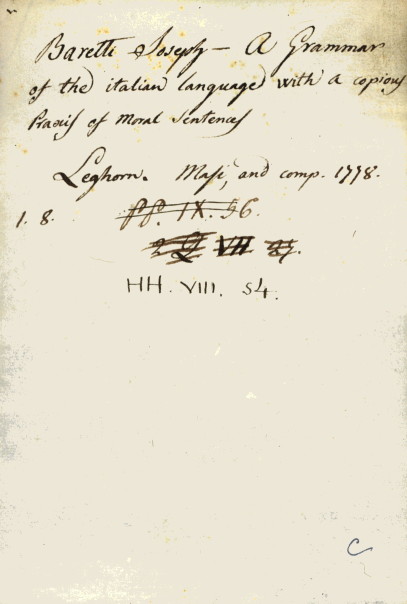 Baretti Joseph – A Grammar
of the italian language with a copious
Praxis of Moral Sentences
Leghorn. Masi, and comp. 1778.
1. 8. ff. IX. 56.
VII
HH. VIII. 54.
C